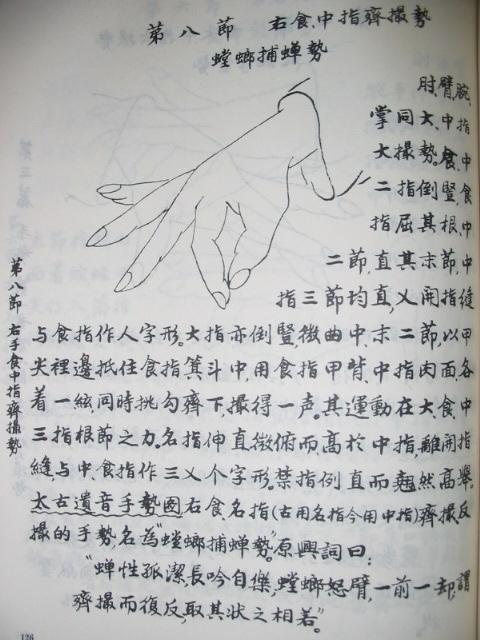 第八節 右食、中指齊撮勢
螳螂捕蟬勢
肘、臂、腕、
掌同大、中指
大撮勢。食、中
二指倒豎,食
指屈其根、中
二節,直其末節,中
指三節均直,乂開指縫
与食指作人字形。大指亦倒豎,微曲中、末二節,以甲
尖裡邊抵住食指箕斗中,用食指甲背、中指肉面,各
着一絃,同時挑勾齊下,撮得一声。其運動在大、食、中
三指根節之力。名指伸直微俯而高於中指,離開指
縫,与中、食指作三乂个字形。禁指例直而翹然高舉。
太古遺音手勢圖右食名指(古用名指今用中指)齊撮、反
撮的手勢,名為“螳螂捕蟬勢”。原興詞曰:
“蟬性孤潔長吟自傑,螳螂怒臂,一前一却,謂
齊撮而復反,取其狀之相若”。
第八節 右手食中指齊撮勢
126